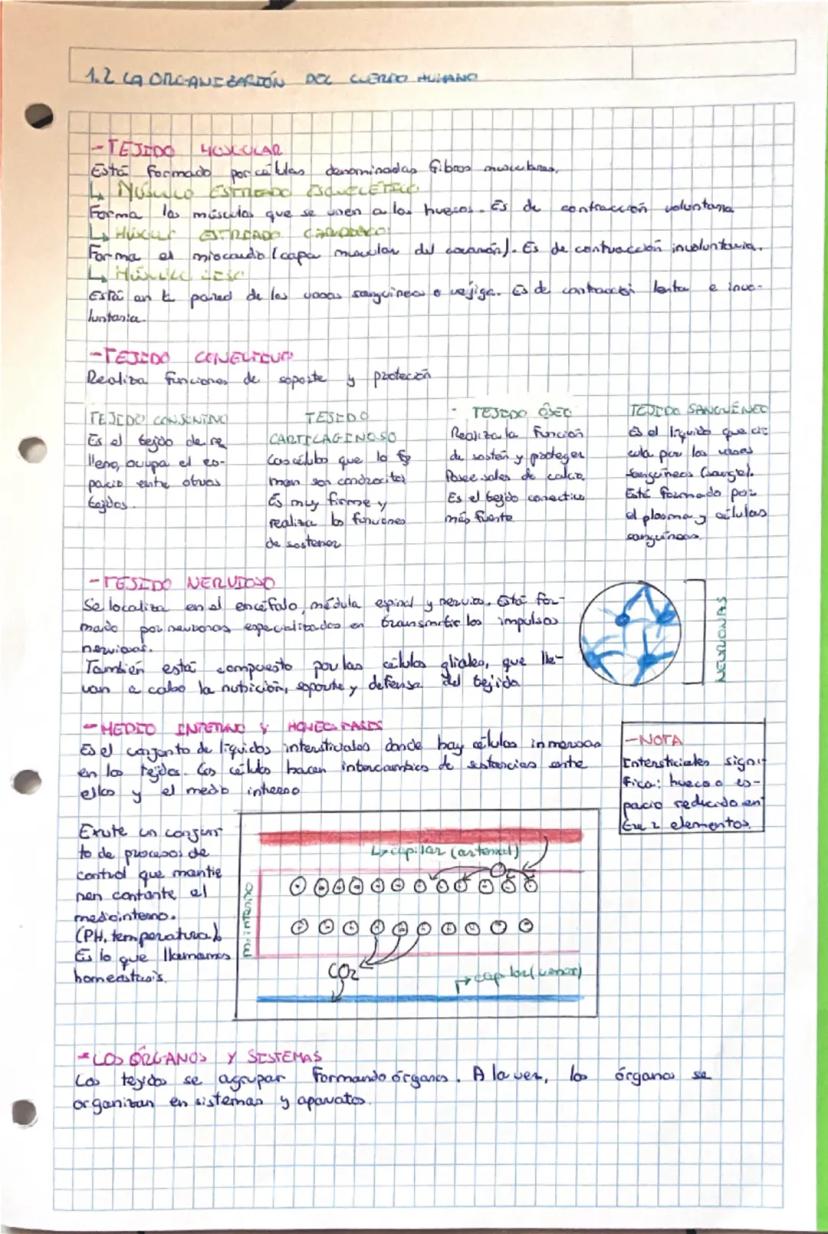 1.2 LA ORGANIZACIÓN DEL CUERPO HUMANO
-TEJIDO MUSCULAR
Está formado por células denominadas fibras musculares.
↳ MÚSCULO ESTRIADO ESQUELÉTICO
Forma los músculos que se unen a los huesos. Es de contracción voluntaria
↳ MÚSCULO ESTRIADO CARDIACO
Forma el miocardio (capa muscular del corazón). Es de contracción involuntaria.
↳ MÚSCULO LISO
Está en la pared de los vasos sanguíneos o vejiga. Es de contracción lenta e invo-
luntaria.
-TEJIDO CONECTIVO
Realiza funciones de soporte y protección
TEJIDO CONJUNTIVO
Es el tejido de re
lleno, ocupa el es-
pacio entre otros
tejidos.
TEJIDO
CARTILAGINOSO
Las células que lo for
man son condrocitos
Es muy firme y
realiza las funciones
de sostener
TEJIDO ÓSEO
Realiza la función
de sostén y proteger
Posee sales de calcio
Es el tejido conectivo
más fuerte
TEJIDO SANGUÍNEO
Es el líquido que cir
cula por los vasos
sanguíneos (sangre).
Está formado por
el plasma y células
sanguíneas.
-TEJIDO NERVIOSO
Se localiza en el encéfalo, médula espinal y nervios. Está for-
mado por neuronas especializadas en transmitir los impulsos
nerviosos.
También está compuesto por las células gliales, que lle-
van a cabo la nutrición, soporte y defensa del tejido
NEURONAS
-MEDIO INTERNO Y HOMEOSTASIS
Es el conjunto de líquidos intersticiales donde hay células inmersas
en los tejidos. Las células hacen intercambios de sustancias entre
ellas y el medio interno
-NOTA
Intersticiales signi-
fica: hueco o es-
pacio reducido en
tre 2 elementos.
Existe un conjun
to de procesos de
control que mantie
nen contante el
medio interno.
(PH, temperatura)
Es lo que llamamos
homeostasis.
↳ capilar (arterial)
M. INTERNO
CO2
↱ capilar (venoso)
-LOS ÓRGANOS Y SISTEMAS
Los tejidos se agrupan formando órganos. A la vez, los órganos se
organizan en sistemas y aparatos.